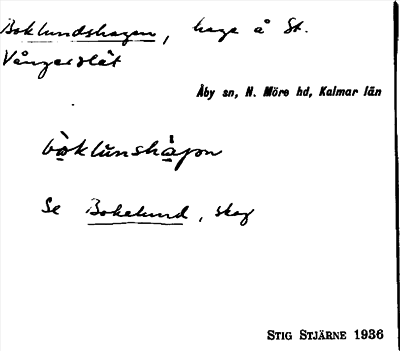 Boklundshagen, hage å St.
Vångerslät
Åby sn, N. Möre hd, Kalmar län
bò̤klŭnshà̤gən
Se Bokelund, skog
STIG STJÄRNE 1936